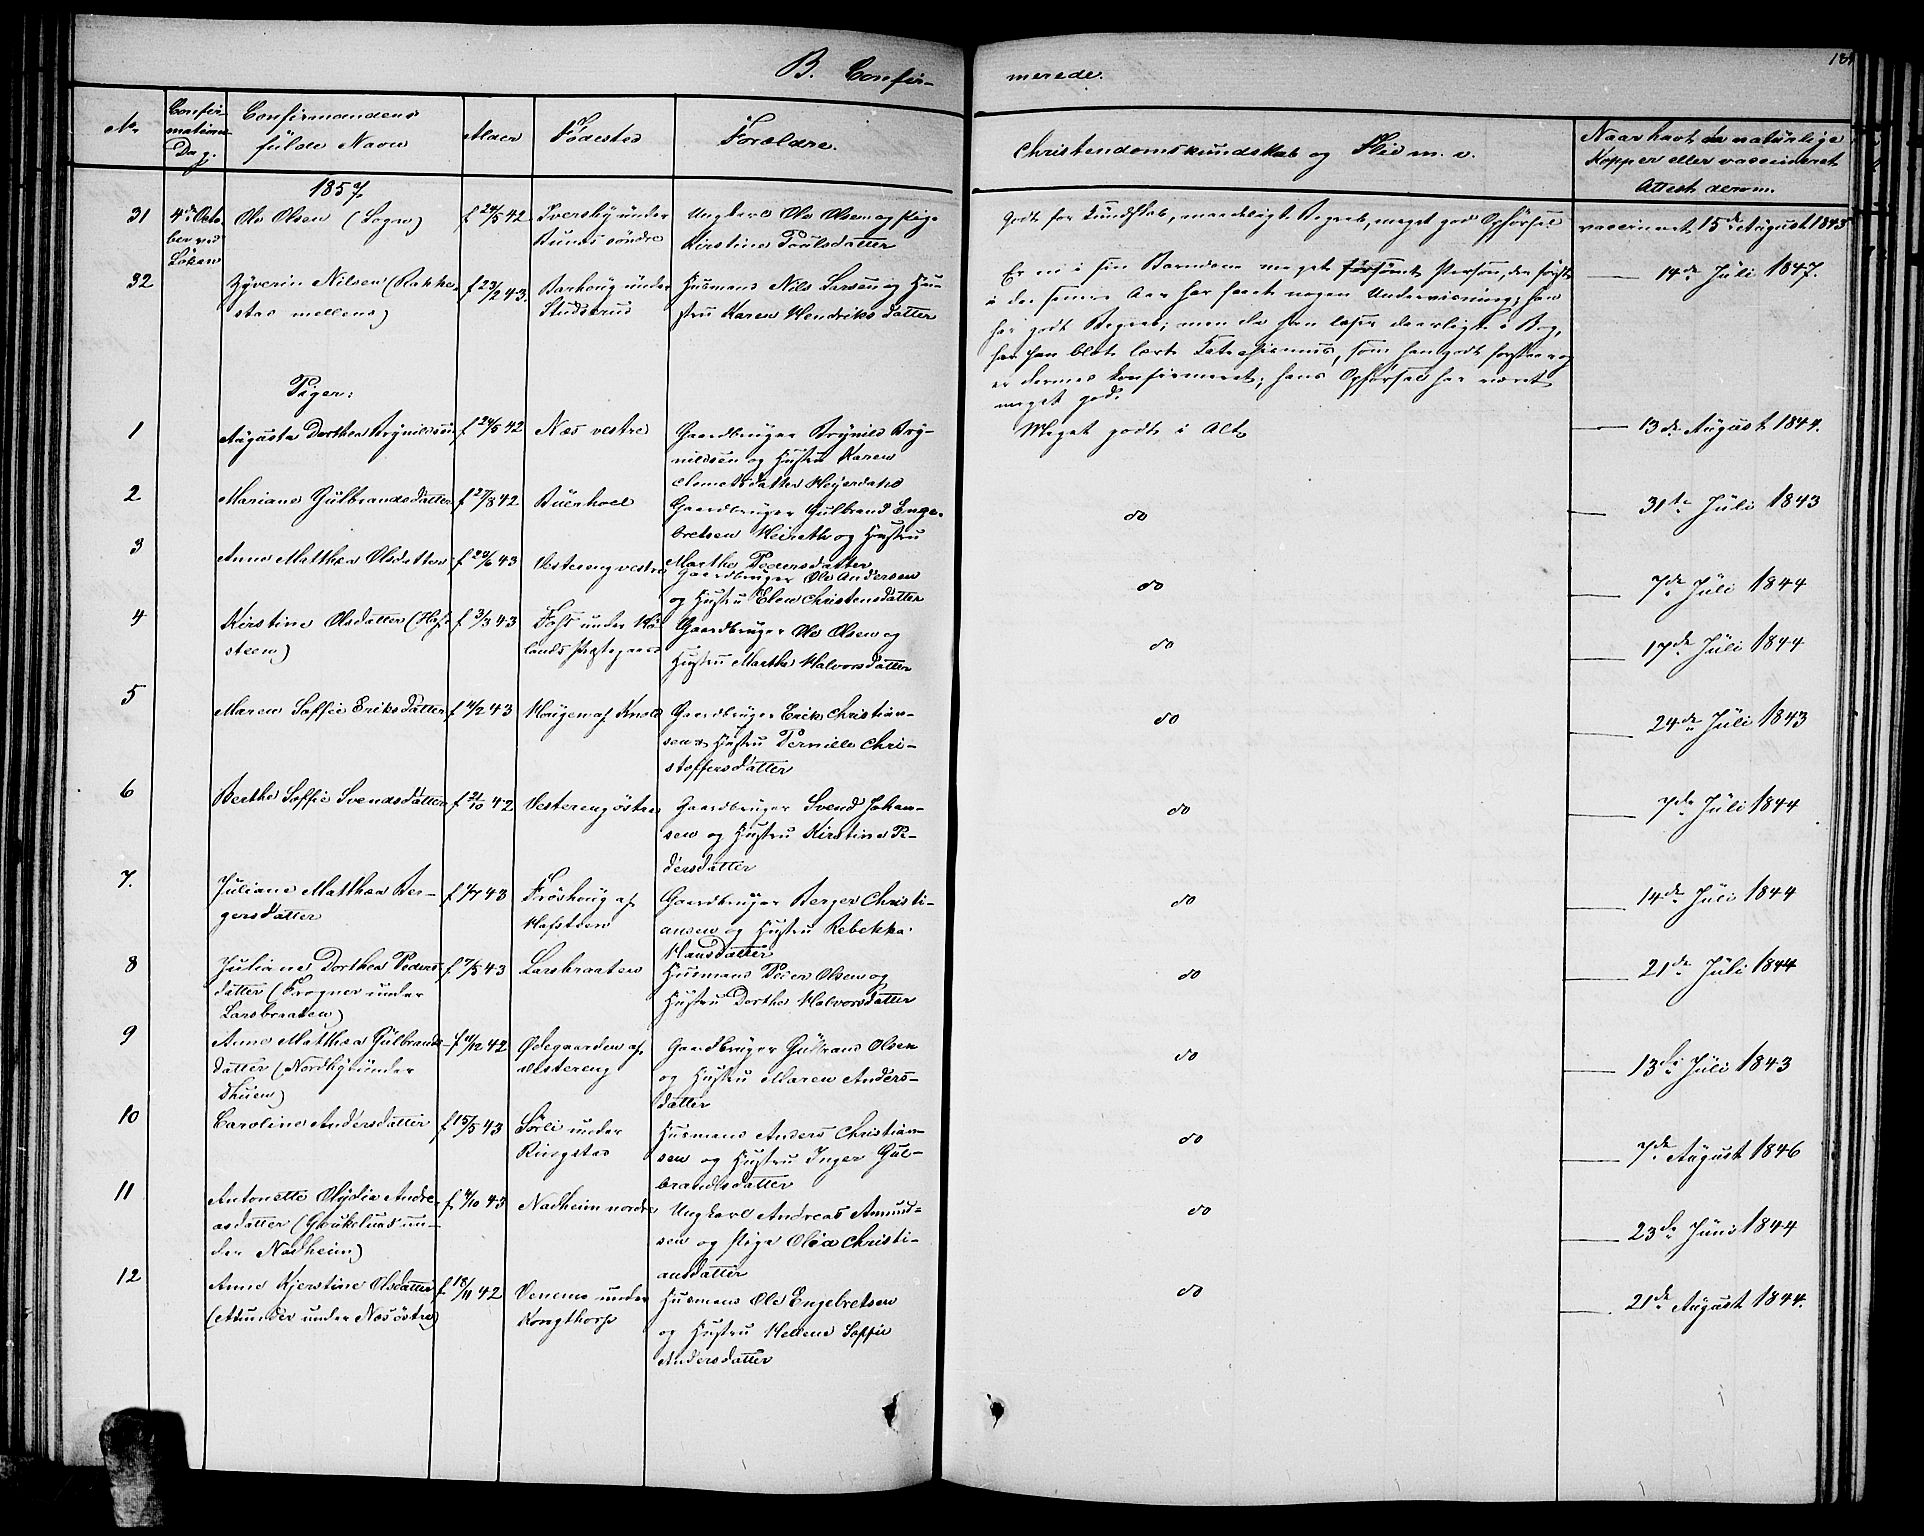 B. Confir-
merede.
184
No.
Confir-
mations
Dag.
Confirmandens
fulde Navn
Alder
Fødested
Forældre.
Christendomskundskab og Flid m. v.
Naar havt de naturlige
Kopper eller vaccineret
Attest derom.
1857.
31
4de Octo-
ber ved
Løken
Ole Olsen (Sogn)
f 24/5 42
Iversby under
Bunes søndre
Ungkarl Ole Olsen og Pige
Kirstine Poulsdatter
Godt for Kundskab, maadeligt Begreb, meget god Opførsel
vaccineret 15de August 1843
32
Zyverin Nilsen (Rakke-
stad mellem)
f 23/2 43.
Barhoug under
Studserud
Husmand Nils Larsen og Hu-
stru Karen Hendriksdatter
Er en i sin Barndom meget forsømt Person, der først
i de senere Aar har faaet nogen Underviisning; han
har godt Begreb; men da han læser daarligt i Bog,
har han blot lært Katechismus, som han godt forstaar og
er dermed konfirmeret; hans Opførsel har været
meget god.
14de Juli 1847.
Piger:
1
Augusta Dorthea Brynildsen
f 24/5 42
Næs vestre
Gaardbruger Brynild Bry-
nildsen og Hustru Karen
Clemetsdatter Høijerdahl
Meget godt i Alt
13de August 1844.
2
Mariane Gulbrandsdatter
f 27/8 42
Buerhoel
Gaardbruger Gulbrand Enge-
bretsen Heireth og Hustru
Marthe Pedersdatter
do
31te Juli 1843
3
Anne Matthea Olsdatter
f 20/6 43
Vestereng vestre
Gaardbruger Ole Andersen
og Hustru Elen Christensdatter
do
7de Juli 1844
4
Kirstine Olsdatter (Haf-
steen)
f 3/3 43
Foss under Hø-
lands Præstegaard
Gaardbruger Ole Olsen og
Hustru Marthe Halvorsdatter
do
17de Juli 1844
5
Maren Soffie Eriksdatter
f 11/2 43
Haugen af Knold
Gaardbruger Erik Christian-
sen og Hustru Pernille Chri-
stoffersdatter
do
24de Juli 1843
6
Berthe Soffie Svendsdatter
f 21/10 42
Vestereng østre
Gaardbruger Svend Johan-
sen og Hustru Kirstine Pe-
dersdatter
do
7de Juli 1844
7.
Juliane Matthea Ber-
gersdatter
f 7/7 43
Frøshoug af
Hafsteen
Gaardbruger Berger Christi-
ansen og Hustru Rebekka
Hansdatter
do
14de Juli 1844
8
Juliane Dorthea Peders-
datter (Frogner under
Larsbraaten)
f 7/5 43
Larsbraaten
Husmand Peder Olsen og
Hustru Dorthe Halvorsdatter
do
21de Juli 1844
9
Anne Mathea Gulbrands-
datter (Nordby under
Thuen)
f 11/12 42
Ødegaarden af
Vestereng
Gaardbruger Gulbrand Olsen
og Hustru Maren Anders-
datter
do
13de Juli 1843
10
Caroline Andersdatter
f 15/5 43
Sørli under
Ringstad
Husmand Anders Christian-
sen og Hustru Inger Gul-
brandsdatter
do
7de August 1846
11
Antonette Olydia Andre-
asdatter (Goukelund un-
der Nadheim)
f 4/10 43
Nadheim nordre
Ungkarl Andreas Amund-
sen og Pige Olea Christi-
ansdatter
do
23de Juni 1844
12
Anne Kjerstine Olsdatter
(Amunder under Næs østre)
f 18/11 42
Venemo under
Kongthorp
Husmand Ole Engebretsen
og Hustru Helene Soffie
Andersdatter
do
21de August 1844.